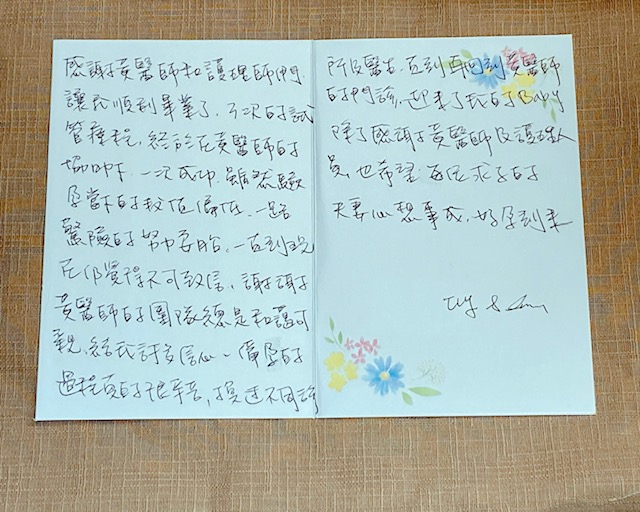 感謝黃醫師和護理師們
讓我順利畢業了，三次的試
管療程，終於在黃醫師的
協助下，一次成功。雖然驗
孕當下的較值偏低，一路
驚險的努力安胎，一直到現
在仍覺得不可致信，謝謝
黃醫師的團隊總是和藹可
親，給我許多信心，備孕的
過程真的很辛苦，換過不同診
所及醫生，直到再回到黃醫師
的門診，迎來了我的Baby
除了感謝黃醫師及護理人
員，也希望每位求子的
夫妻心想事成，好孕到來